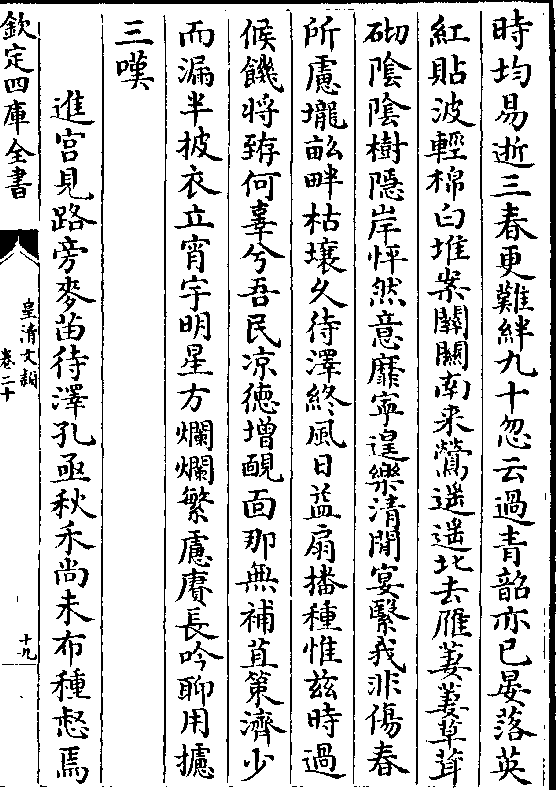 時均易逝三春更難絆九十忽云過青韶亦已晏落英
紅貼波輕棉白堆案關關南来鶯遥遥北去雁萋萋草茸
砌陰陰樹隱岸怦然意靡寧遑樂清閒宴繄我非傷春
所慮壠畝畔枯壤久待澤終風日益扇播種惟兹時過
候饑将臻何辜兮吾民凉徳增靦面那無補苴策濟少
而漏半披衣立宵宇明星方爛爛繁慮賡長吟聊用攄
三嘆
進宫見路旁麥苗待澤孔亟秋禾尚未布種惄焉
欽定四庫全書
皇清文頴
卷二十
十九